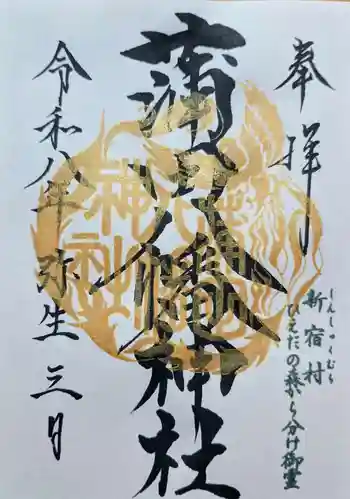 奉拝
しんしゅくむら
新宿村
ひえだの森から分け御霊
蒲田八幡神社
令和八年 弥生 三日